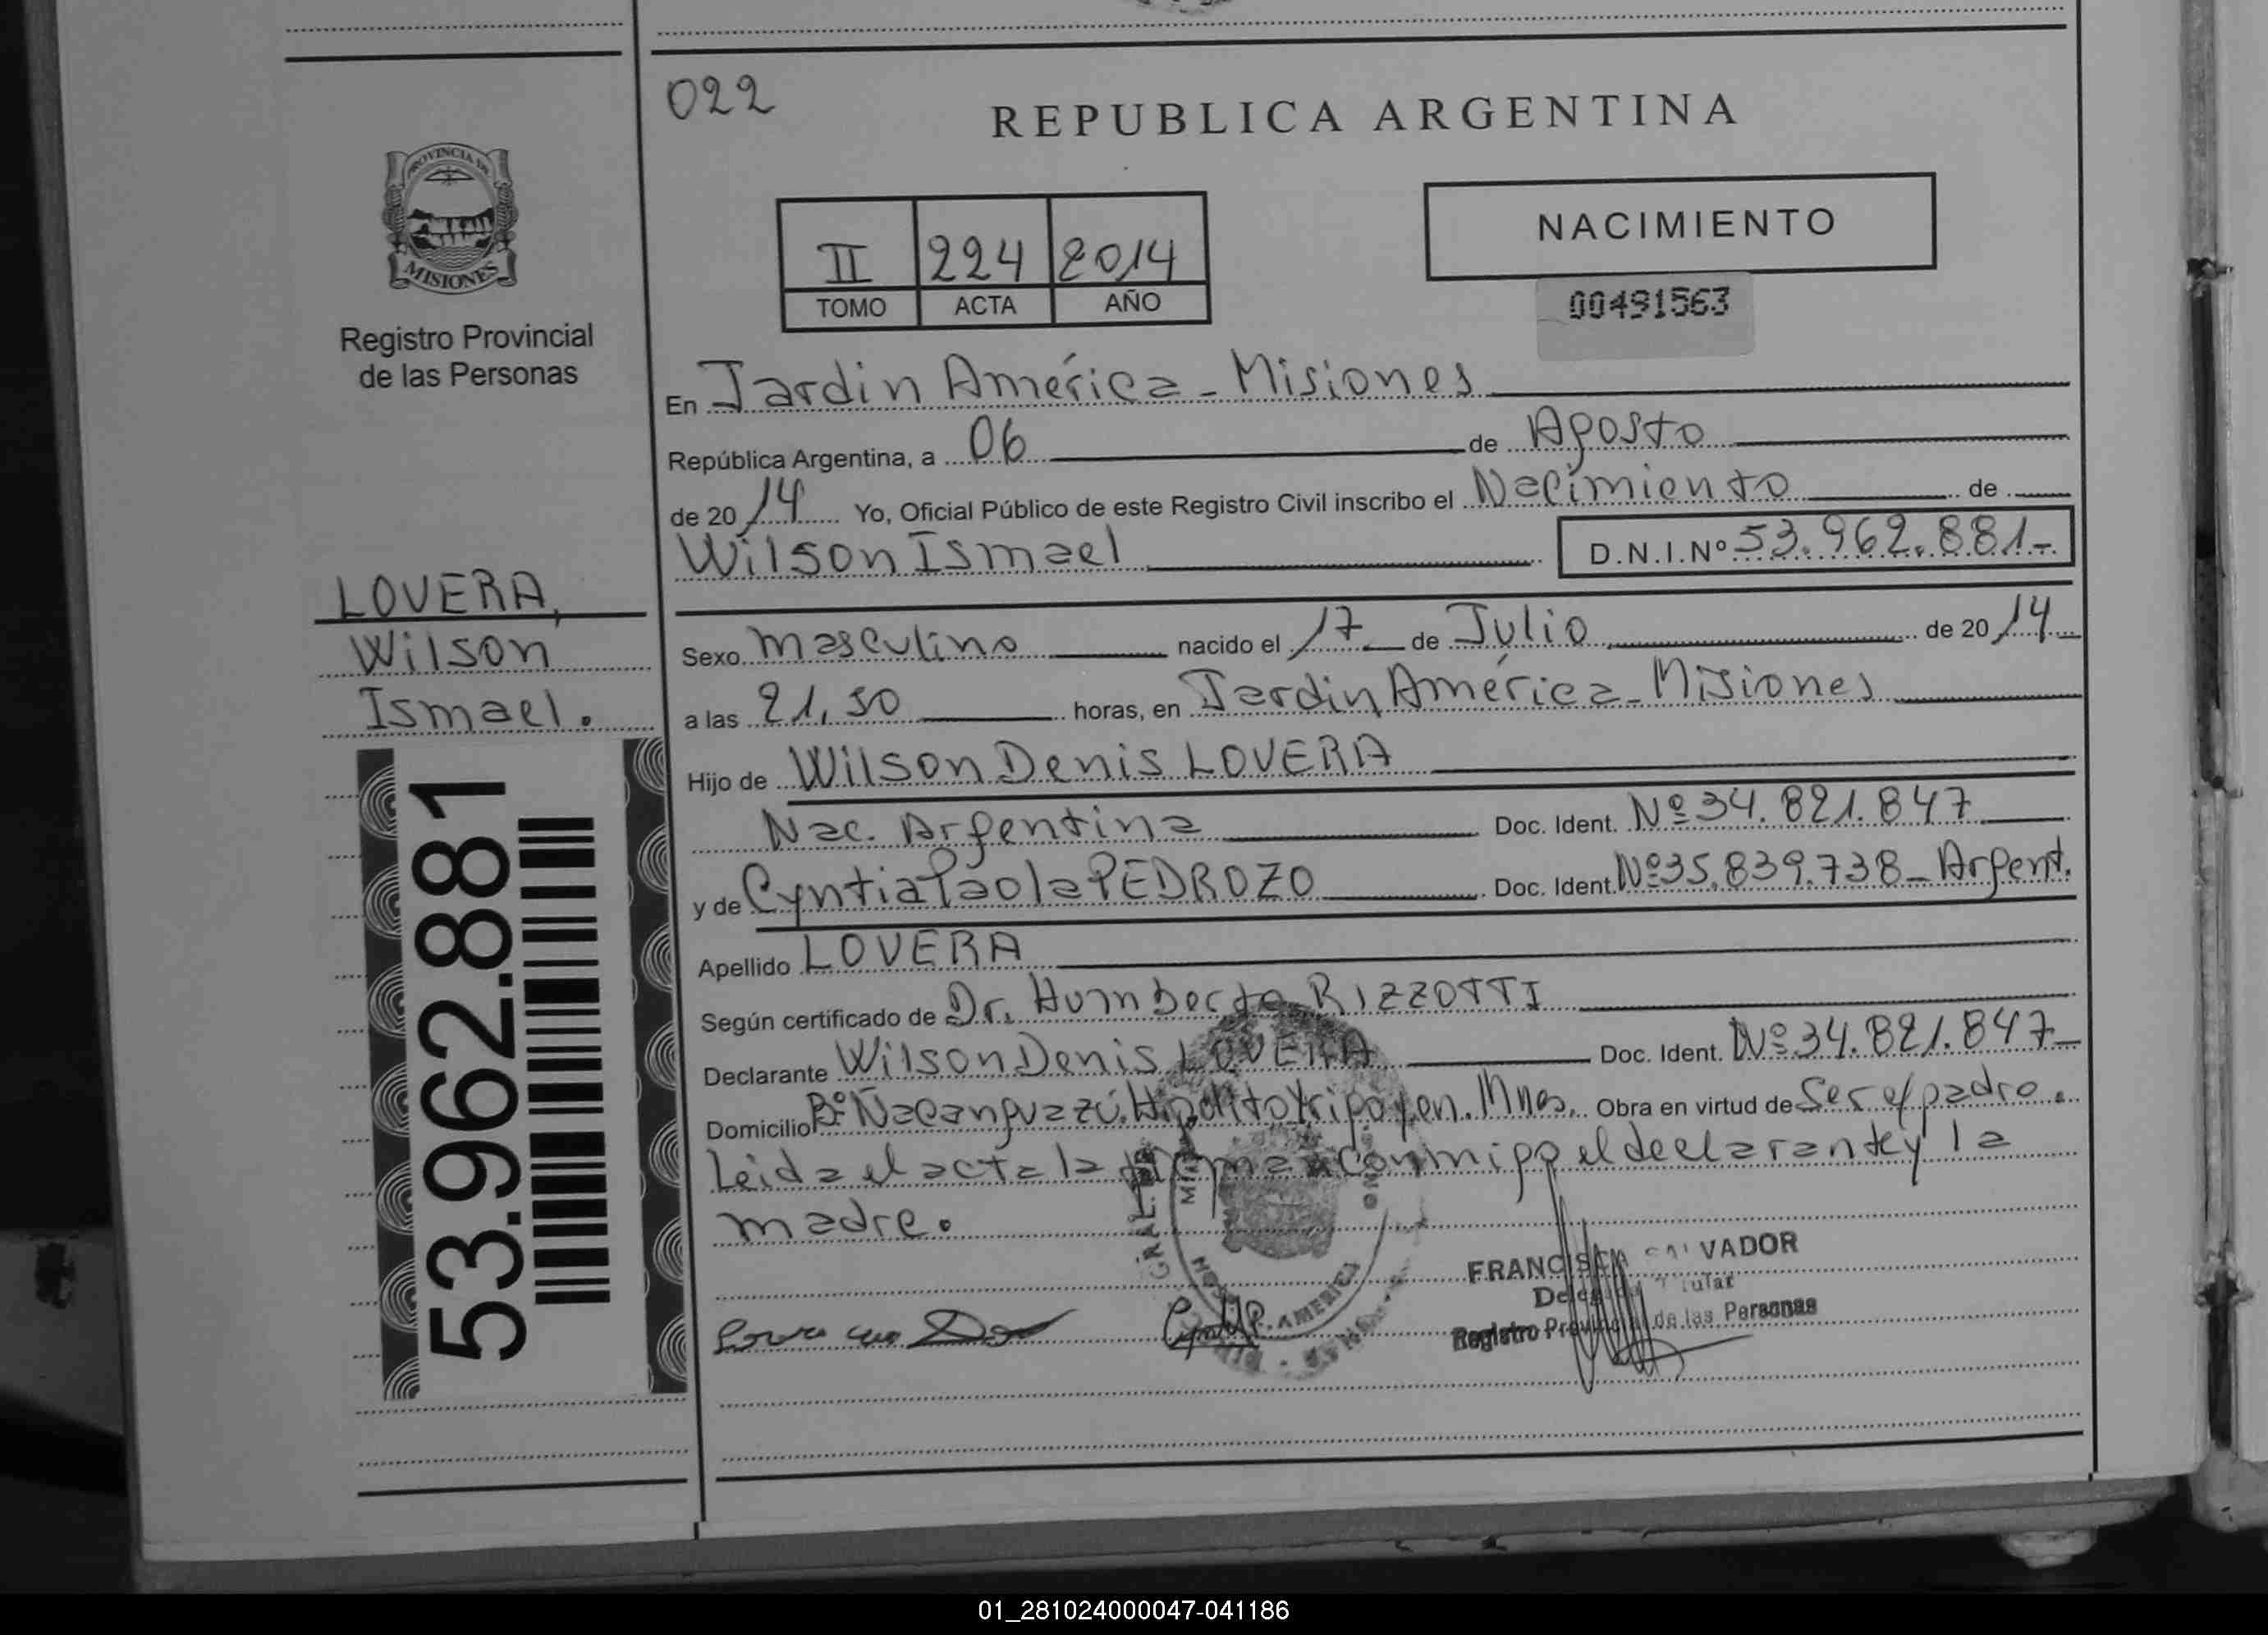 022
REPUBLICA ARGENTINA
PROVINCIA DE
MISIONES
Registro Provincial
de las Personas
II 224 2014
TOMO ACTA AÑO
NACIMIENTO
00491563
En Jardin América - Misiones
República Argentina, a 06 de Agosto
de 2014 Yo, Oficial Público de este Registro Civil inscribo el Nacimiento de
Wilson Ismael D.N.I.Nº 53.962.881-
LOVERA,
Wilson
Ismael.
Sexo masculino nacido el 17 de Julio de 2014
a las 21,50 horas, en Jardin América - Misiones
Hijo de Wilson Denis LOVERA
Nac. Argentina Doc. Ident. Nº 34.821.847
y de Cyntia Paola PEDROZO Doc. Ident. Nº 35.839.738 - Argent.
Apellido LOVERA
Según certificado de Dr. Humberto RIZZOTTI
Declarante Wilson Denis LOVERA Doc. Ident. Nº 34.821.847-
Domicilio Bº Ñacanguazú. Hipólito Yrigoyen. Mnes. Obra en virtud de Ser el padre.
Leida el acta la firman conmigo el declarante y la
madre.
53.962.881
FRANCISCA SALVADOR
Titular
Registro Provincial de las Personas
AMERICA
01_281024000047-041186